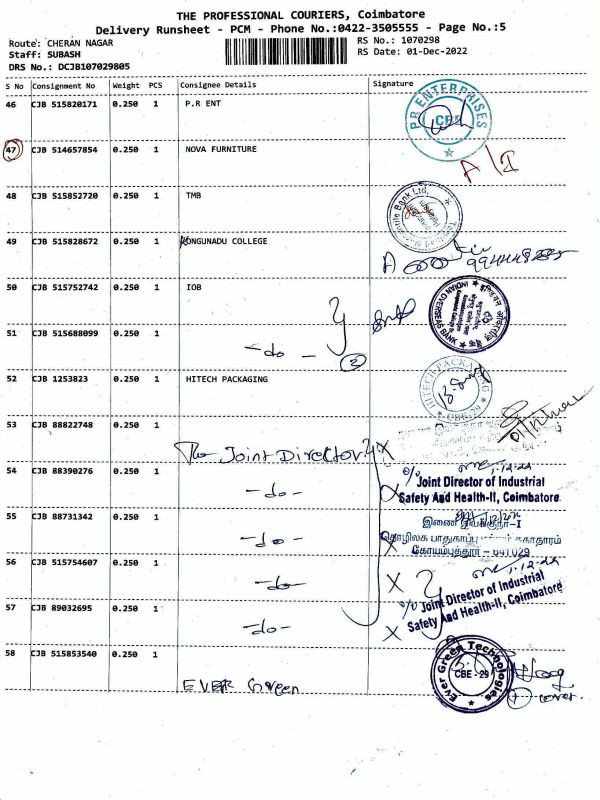 THE PROFESSIONAL COURIERS, Coimbatore
Delivery Runsheet - PCM - Phone No.:0422-3505555 - Page No.:5
Route: CHERAN NAGAR
RS No.: 1070298
Staff: SUBASH
RS Date: 01-Dec-2022
DRS No.: DCJB107029805
S No Consignment No Weight PCS Consignee Details Signature
46 CJB 515820171 0.250 1 P.R ENT
PR ENTERPRISES
CBE
47 CJB 514657854 0.250 1 NOVA FURNITURE
48 CJB 515852720 0.250 1 TMB
Tamilnad Mercantile Bank Ltd,
49 CJB 515828672 0.250 1 KONGUNADU COLLEGE
50 CJB 515752742 0.250 1 IOB
INDIAN OVERSEAS BANK
51 CJB 515688099 0.250 1
-do- 2
52 CJB 1253823 0.250 1 HITECH PACKAGING
HITECH PACKAGING
CBE-29
53 CJB 88822748 0.250 1
The Joint Director
1-12-22
54 CJB 88390276 0.250 1
-do-
o/o Joint Director of Industrial
Safety And Health-II, Coimbatore
55 CJB 88731342 0.250 1
-do-
இணை இயக்குநர்-I
தொழிலக பாதுகாப்பு மற்றும் சுகாதாரம்
கோயம்புத்தூர் - 641029
56 CJB 515754607 0.250 1
-do-
1-12-22
57 CJB 89032695 0.250 1
-do-
o/o Joint Director of Industrial
Safety And Health-II, Coimbatore
58 CJB 515853540 0.250 1
EVER Green
Ever Green Technologies
CBE -29
1 cover.